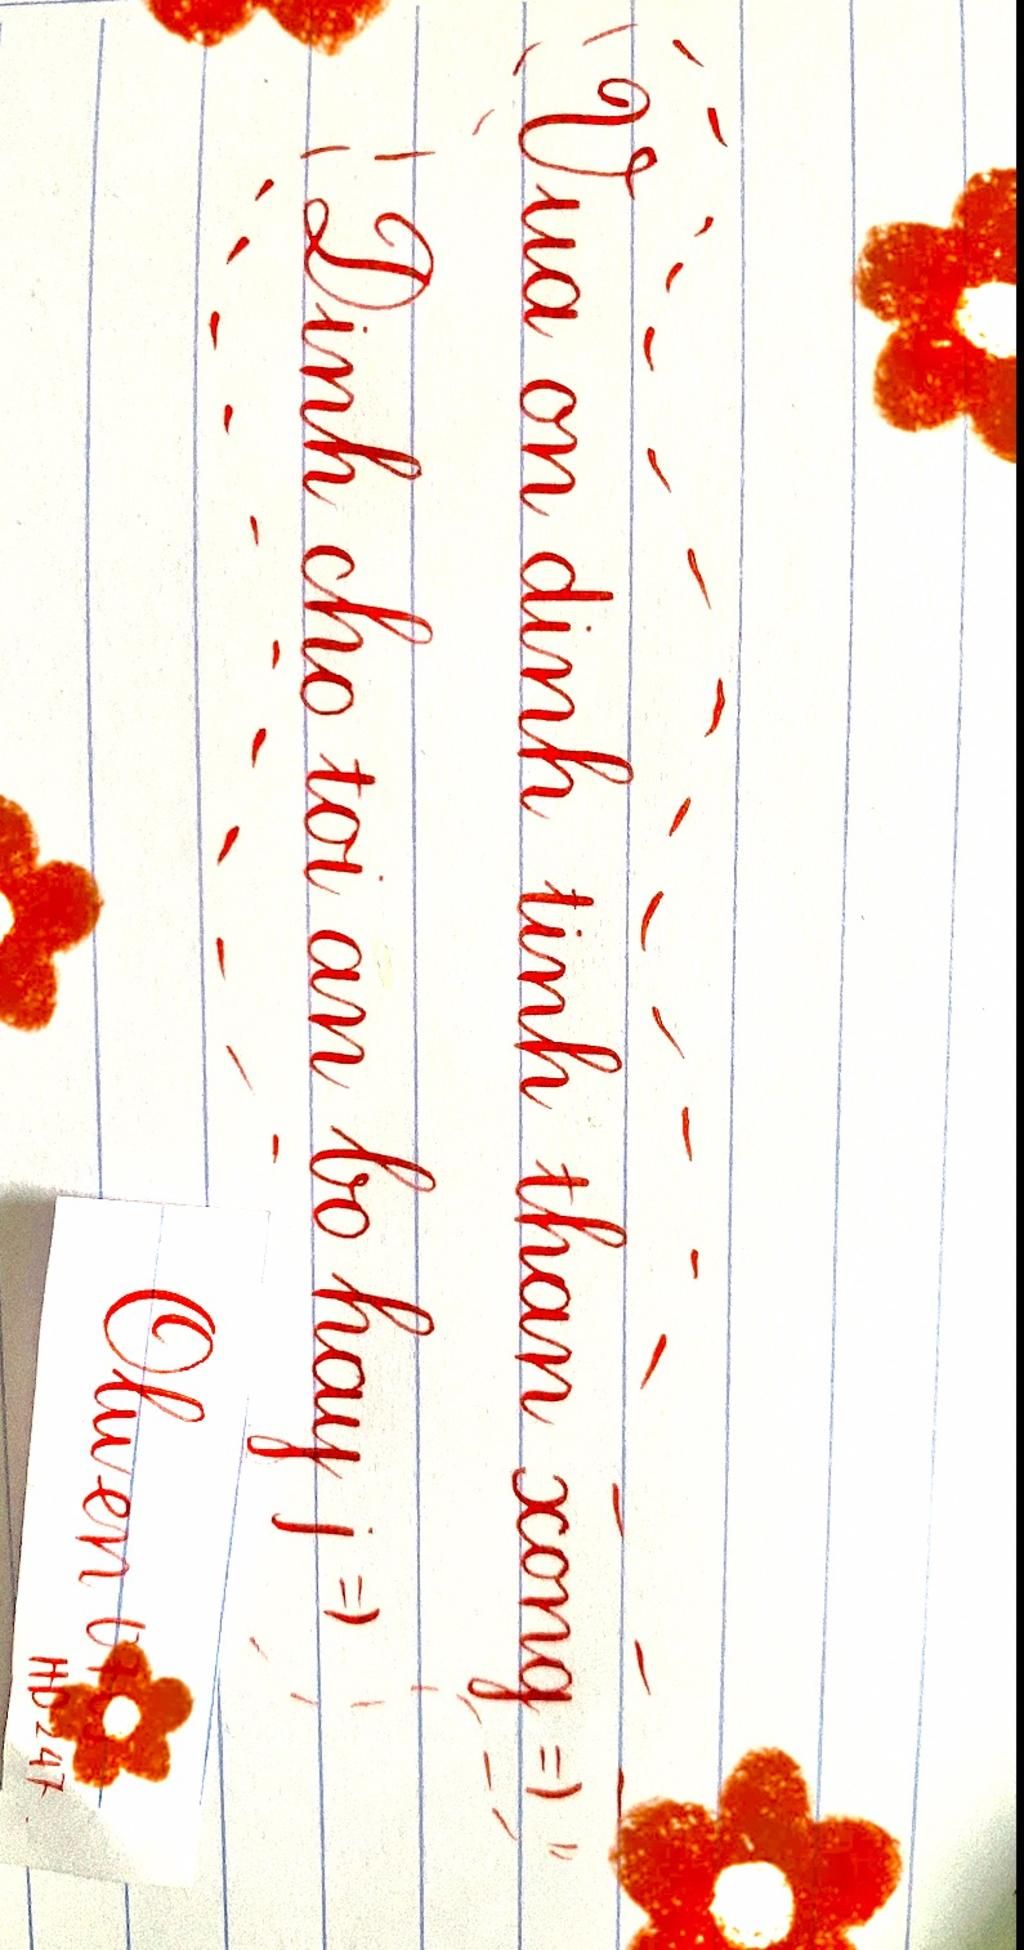 Vua on dinh tinh than xong =) "
Dinh cho toi an bo hay j =)
Olwen
HD247